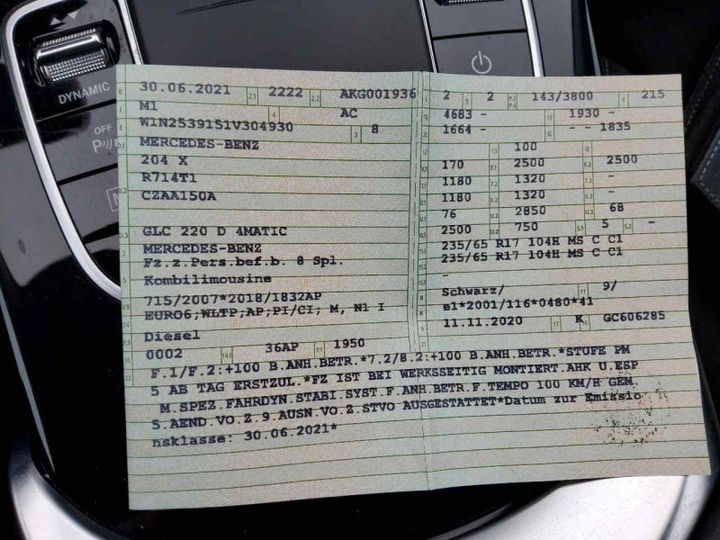 DYNAMIC
OFF
B 30.06.2021 2.1 2222 2.2 AKG001936
J M1 4 AC
E W1N2539151V304930 3 8
D.1 MERCEDES-BENZ
204 X
R714T1
D.2 CZAA150A
GLC 220 D 4MATIC
MERCEDES-BENZ
Fz.z.Pers.bef.b. 8 Spl.
Kombilimousine
715/2007*2018/1832AP
EURO6;WLTP;AP;PI/CI; M, N1 I
Diesel
0002 14.1 36AP P.1 1950
2 2 P.2 P.4 143/3800 T 215
4683 - 1930 -
1664 - - - 1835
100
170 2500 2500
1180 1320 -
1180 1320 -
76 2850 U.3 68
2500 750 S.1 5 S.2 -
235/65 R17 104H MS C C1
235/65 R17 104H MS C C1
-
Schwarz/ 11 9/
K e1*2001/116*0480*41
6 11.11.2020 17 K 16 GC606285
F.1/F.2:+100 B.ANH.BETR.*7.2/8.2:+100 B.ANH.BETR.*STUFE PM
5 AB TAG ERSTZUL.*FZ IST BEI WERKSSEITIG MONTIERT.AHK U.ESP
M.SPEZ.FAHRDYN.STABI.SYST.F.ANH.BETR.F.TEMPO 100 KM/H GEM.
5.AEND.VO.Z.9.AUSN.VO.Z.STVO AUSGESTATTET*Datum zur Emissio
nsklasse: 30.06.2021*